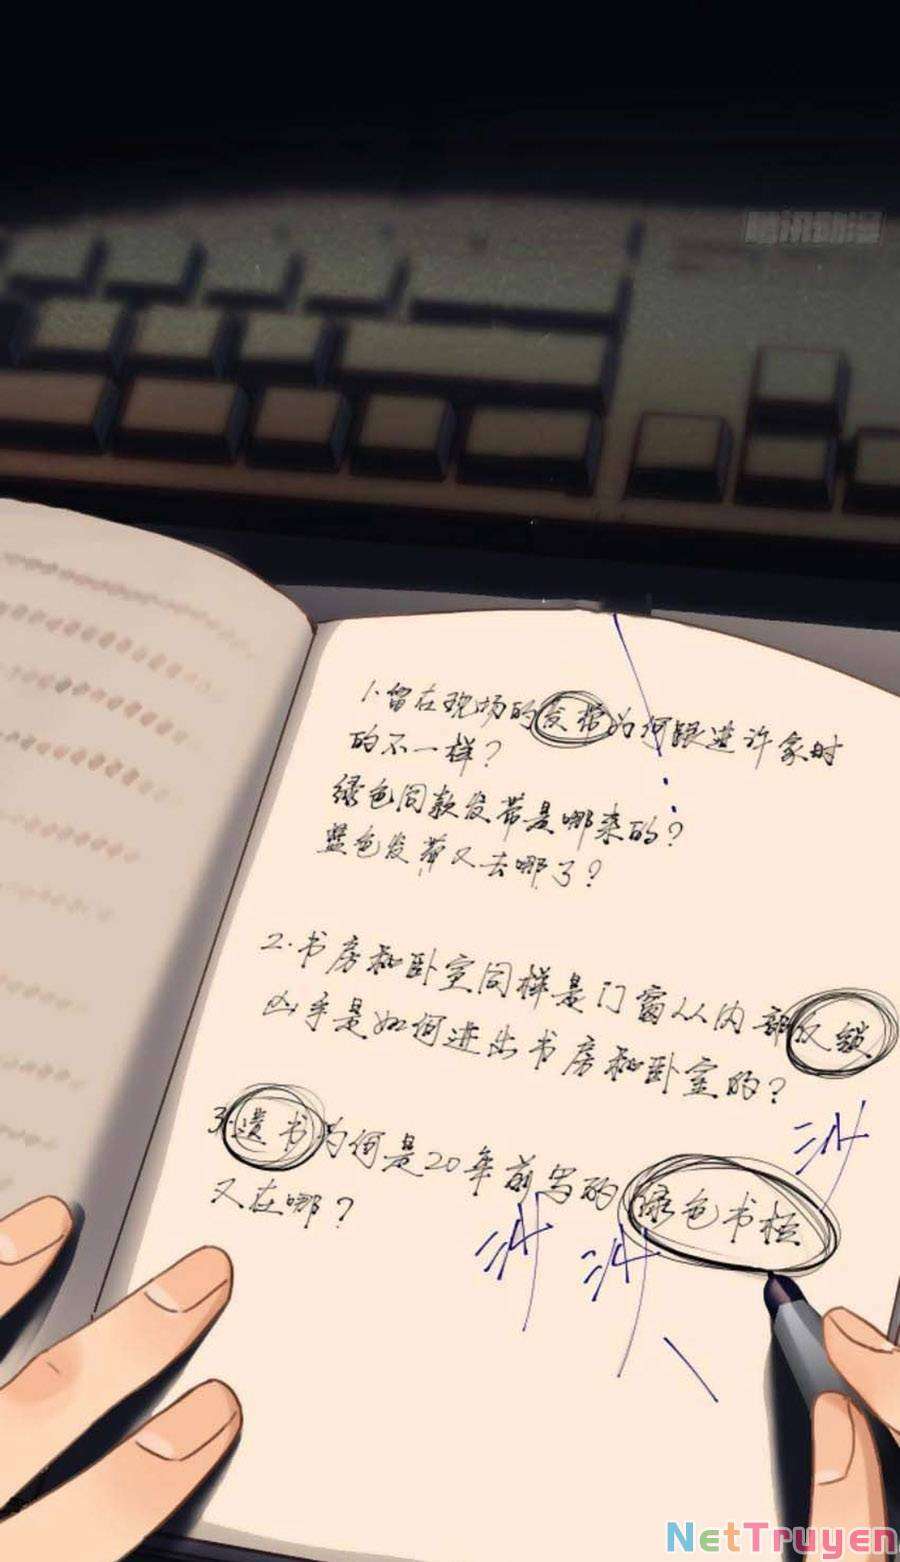 1.留在现场的发带为何跟进许家时
的不一样？
绿色同款发带是哪来的？
蓝色发带又去哪了？
2.书房和卧室同样是门窗从内部反锁
凶手是如何进出书房和卧室的？
3.遗书为何是20年前写的绿色书柜
又在哪？
沙
沙沙
NetTruyen